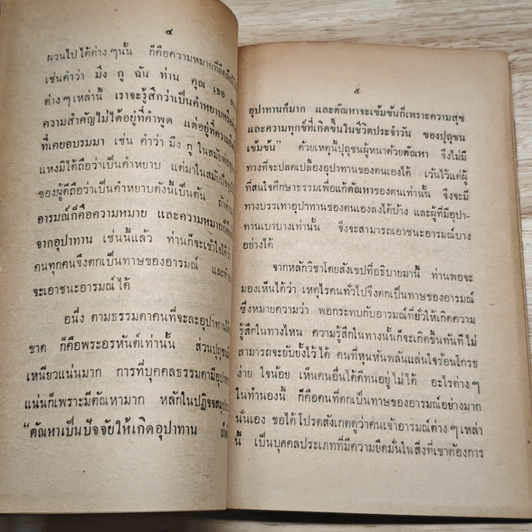 ๔
ผวนไปได้ต่างๆนั้น ก็คือความหมายที่
เช่นคำว่า มึง กู ฉัน ท่าน คุณ เธอ
ต่างๆเหล่านี้ เราจะรู้สึกว่าเป็นคำหยาบ
ความสำคัญไม่ได้อยู่ที่คำพูด แต่อยู่ที่ความ
ที่เคยอบรมมา เช่น คำว่า มึง กู ในสมัย
แหงมิได้ถือว่าเป็นคำหยาบ แต่มาในสมัย
ของผู้ดีถือว่าเป็นคำหยาบดังนี้เป็นต้น
อารมณ์ก็คือความหมาย และความหมายก็
จากอุปาทาน เช่นนี้แล้ว ท่านก็จะเข้าใจได้
คนทุกคนจึงตกเป็นทาษของอารมณ์
จะเอาชนะอารมณ์ได้
อนึ่ง ตามธรรมดาคนที่จะละอุปาทาน
ขาด ก็คือพระอรหันต์เท่านั้น ส่วนปุถุชน
เหนียวแน่นมาก การที่บุคคลธรรมดามีอุปาทาน
แน่นก็เพราะมีตัณหามาก หลักในปฏิจจสมุปบาท
“ตัณหาเป็นปัจจัยให้เกิดอุปาทาน
๕
อุปาทานก็มาก และตัณหาจะเข้มข้นก็เพราะความสุข
และความทุกข์ที่เกิดขึ้นในชีวิตประจำวัน ของปุถุชน
เข้มข้น” ด้วยเหตุนี้ปุถุชนผู้หนาด้วยตัณหา จึงไม่มี
ทางที่จะปลดเปลื้องอุปาทานของตนเองได้ เว้นไว้แต่ผู้
ที่สนใจศึกษาธรรมเพื่อแก้ตัณหาของตนเท่านั้น จึงจะมี
ทางบรรเทาอุปาทานของตนเองลงได้บ้าง และผู้ที่มีอุปา-
ทานเบาบางเท่านั้น จึงจะสามารถเอาชนะอารมณ์บาง
อย่างได้
จากหลักวิชาโดยสังเขปที่อธิบายมานี้ ท่านพอจะ
มองเห็นได้ว่า เหตุไรคนทั่วไปจึงตกเป็นทาษของอารมณ์
ซึ่งหมายความว่า พอกระทบกับอารมณ์ที่ยั่วให้เกิดความ
รู้สึกในทางไหน ความรู้สึกในทางนั้นก็จะเกิดขึ้นทันทีไม่
สามารถจะยับยั้งไว้ได้ คนที่หุนหันพลันแล่นใจร้อนโกรธ
ง่าย ใจน้อย เห็นคนอื่นได้ดีทนอยู่ไม่ได้ อะไรต่างๆ
ในทำนองนี้ ก็คือคนที่ตกเป็นทาษของอารมณ์อย่างมาก
นั่นเอง ขอได้โปรดสังเกตดูว่าคนเจ้าอารมณ์ต่างๆเหล่า
นี้ เป็นบุคคลประเภทที่มีความยึดมั่นในสิ่งที่เขาต้องการ